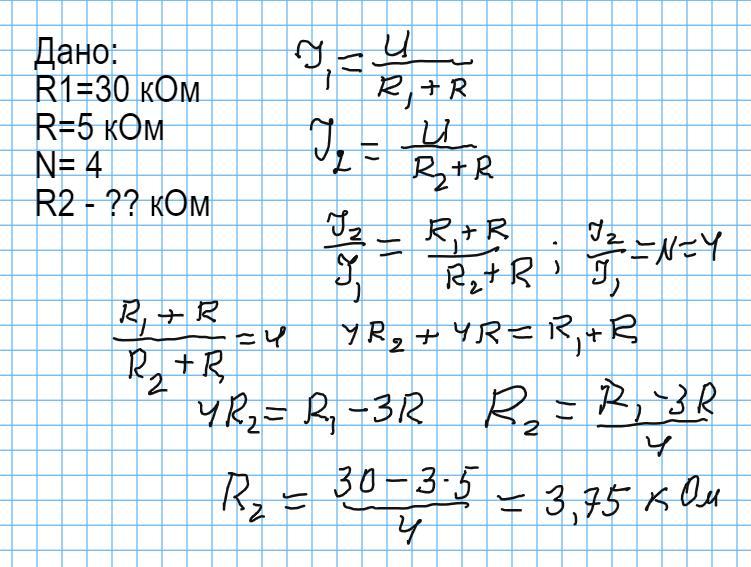 Дано:
R1=30 кОм
R=5 кОм
N= 4
R2 - ?? кОм
J₁ = U / (R₁ + R)
J₂ = U / (R₂ + R)
J₂ / J₁ = (R₁ + R) / (R₂ + R) ; J₂ / J₁ = N = 4
(R₁ + R) / (R₂ + R) = 4    4R₂ + 4R = R₁ + R
4R₂ = R₁ − 3R    R₂ = (R₁ − 3R) / 4
R₂ = (30 − 3·5) / 4 = 3,75 кОм